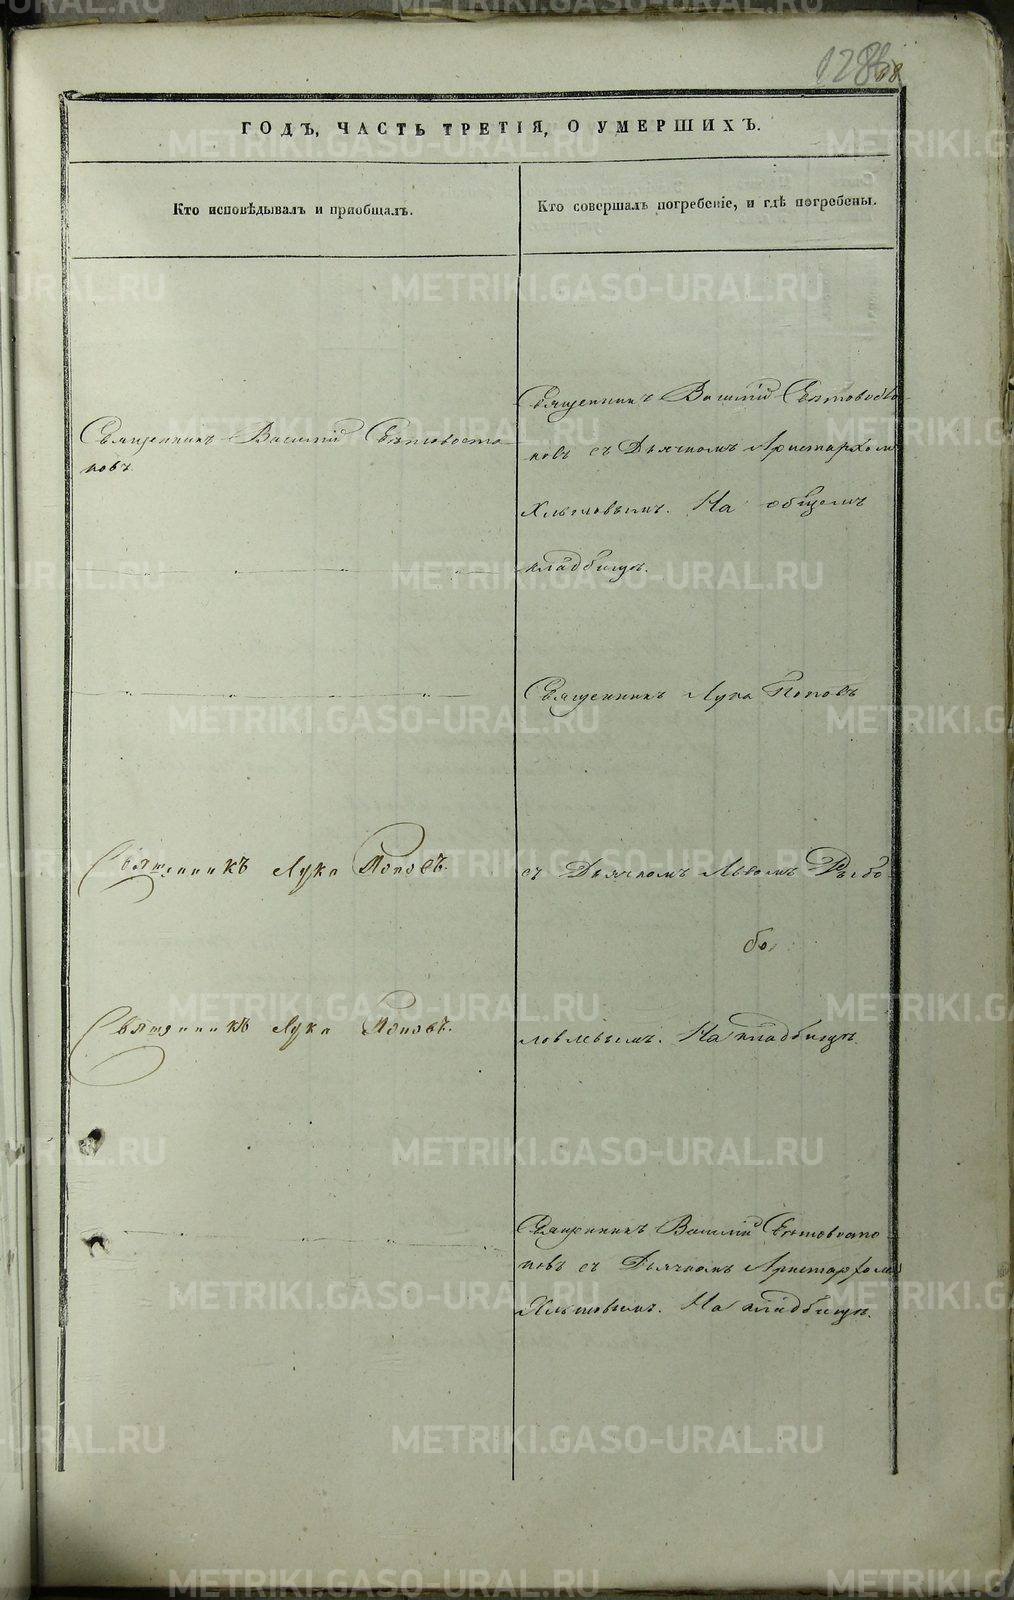 128
ГОДЪ, ЧАСТЬ ТРЕТІЯ, О УМЕРШИХЪ.
Кто исповѣдывалъ и пріобщалъ.
Кто совершалъ погребеніе, и гдѣ погребены.
Священникъ Василій Свѣтовоста
новъ
Священникъ Лука Поповъ.
Священникъ Лука Поповъ.
Священникъ Василій Свѣтовоста
новъ съ Дьячкомъ Аристархомъ
На общемъ
кладбищѣ.
Священникъ Лука Поповъ
съ Дьячкомъ Львомъ Рыбо
бо
ловлевымъ. На кладбищѣ.
Священникъ Василій Свѣтовоста
новъ съ Дьячкомъ Аристархомъ
На кладбищѣ.
METRIKI.GASO-URAL.RU